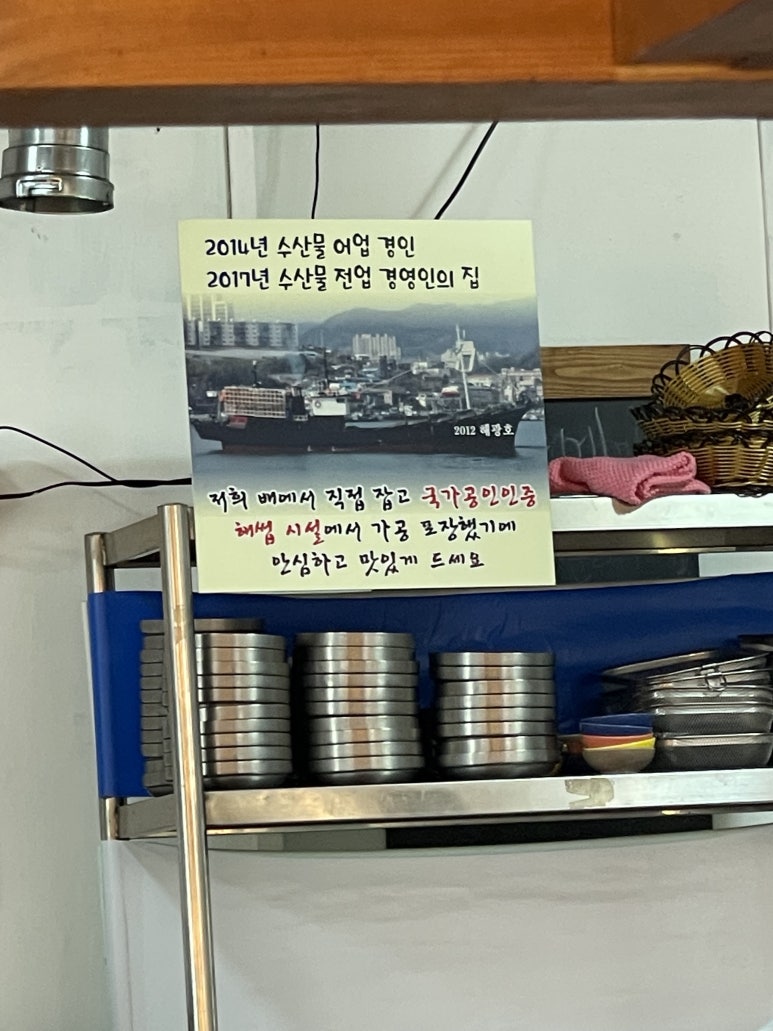 2014년 수산물 어업 경인
2017년 수산물 전업 경영인의 집
2012 해광호
저희 배에서 직접 잡고 국가공인인증
해썹 시설에서 가공 포장했기에
안심하고 맛있게 드세요